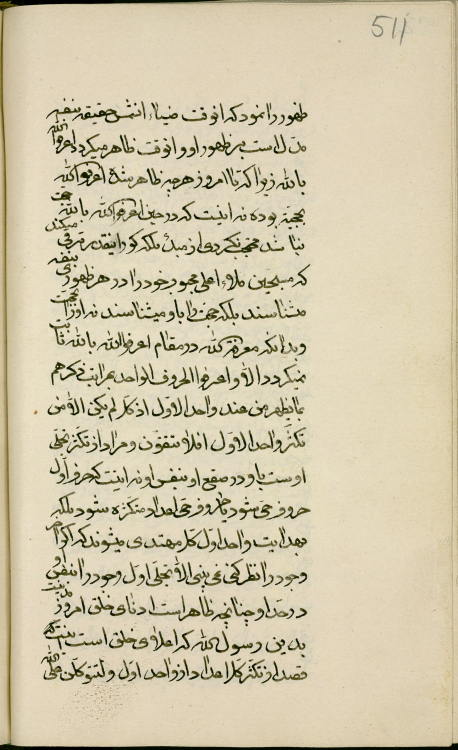 511
ظهور را نمود که انوقت ضیاء ان شمس حقیقة بنفسه
مدل است بر ظهور او و انوقت ظاهر میگردد اعرفوا الله
بالله زیرا که تا امروز هرچه ظاهر شده اعرفوا الله
بحجیة بوده نه اینست که در حین اعرفوا الله بالله حجت
نباشد محتجب نگردی از مبدء بلکه کور را اینقدر ترقی میکند
که مسبحین ملاء اعلی محبوب خود را در هر ظهوری بنفسه
میشناسند بلکه حجت را باو میشناسند نه او را بحجت
و بدانکه معرفة الله در مقام اعرفوا الله بالله ثابت
نمیگردد الا و اعرفوا الحروف الواحد بمراتب ذکرهم
بما یظهر من عند واحد الاول اذ کل لم یکن الا من
تکثر واحد الاول افلا تتقون و مراد از تکثر تجلی
اوست باو در صقع او بنفس او نه اینست که حرف اول
حروف حی شود یا حروف حی اعداد متکثره شود بلکه
بهدایت واحد اول کل مهتدی میشوند که اگر در
وجود نظر کنی نمی بینی الا تجلی اول وجود را بنفس او
در حد او چنانچه ظاهر است ادنای خلق امروز مدینت
بدین رسول الله که اعلای خلق است اینست که
قصد از تکثر کل اعداد از واحد اول و لتتوکلن علی الله